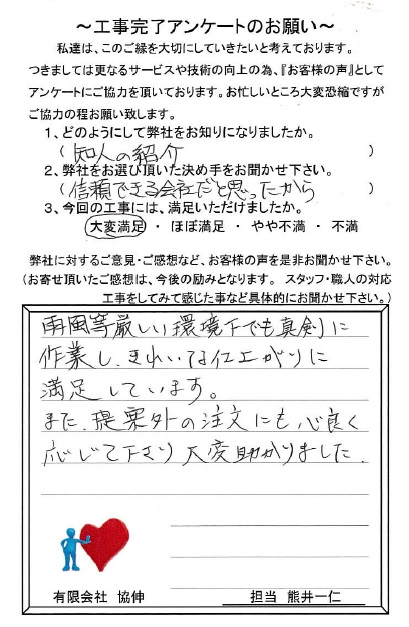 ～工事完了アンケートのお願い～
私達は、このご縁を大切にしていきたいと考えております。
つきましては更なるサービスや技術の向上の為、『お客様の声』として
アンケートにご協力を頂いております。お忙しいところ大変恐縮ですが
ご協力の程お願い致します。
1、どのようにして弊社をお知りになりましたか。
(知人の紹介)
2、弊社をお選び頂いた決め手をお聞かせ下さい。
(信頼できる会社だと思ったから)
3、今回の工事には、満足いただけましたか。
大変満足・ほぼ満足・やや不満・不満
弊社に対するご意見・ご感想など、お客様の声を是非お聞かせ下さい。
(お寄せ頂いたご感想は、今後の励みとなります。スタッフ・職人の対応
工事をしてみて感じた事など具体的にお聞かせ下さい。)
雨風等厳しい環境下でも真剣に
作業し、きれいな仕上がりに
満足しています。
また、提案外の注文にも心良く
応じて下さり大変助かりました。
有限会社 協伸
担当 熊井一仁